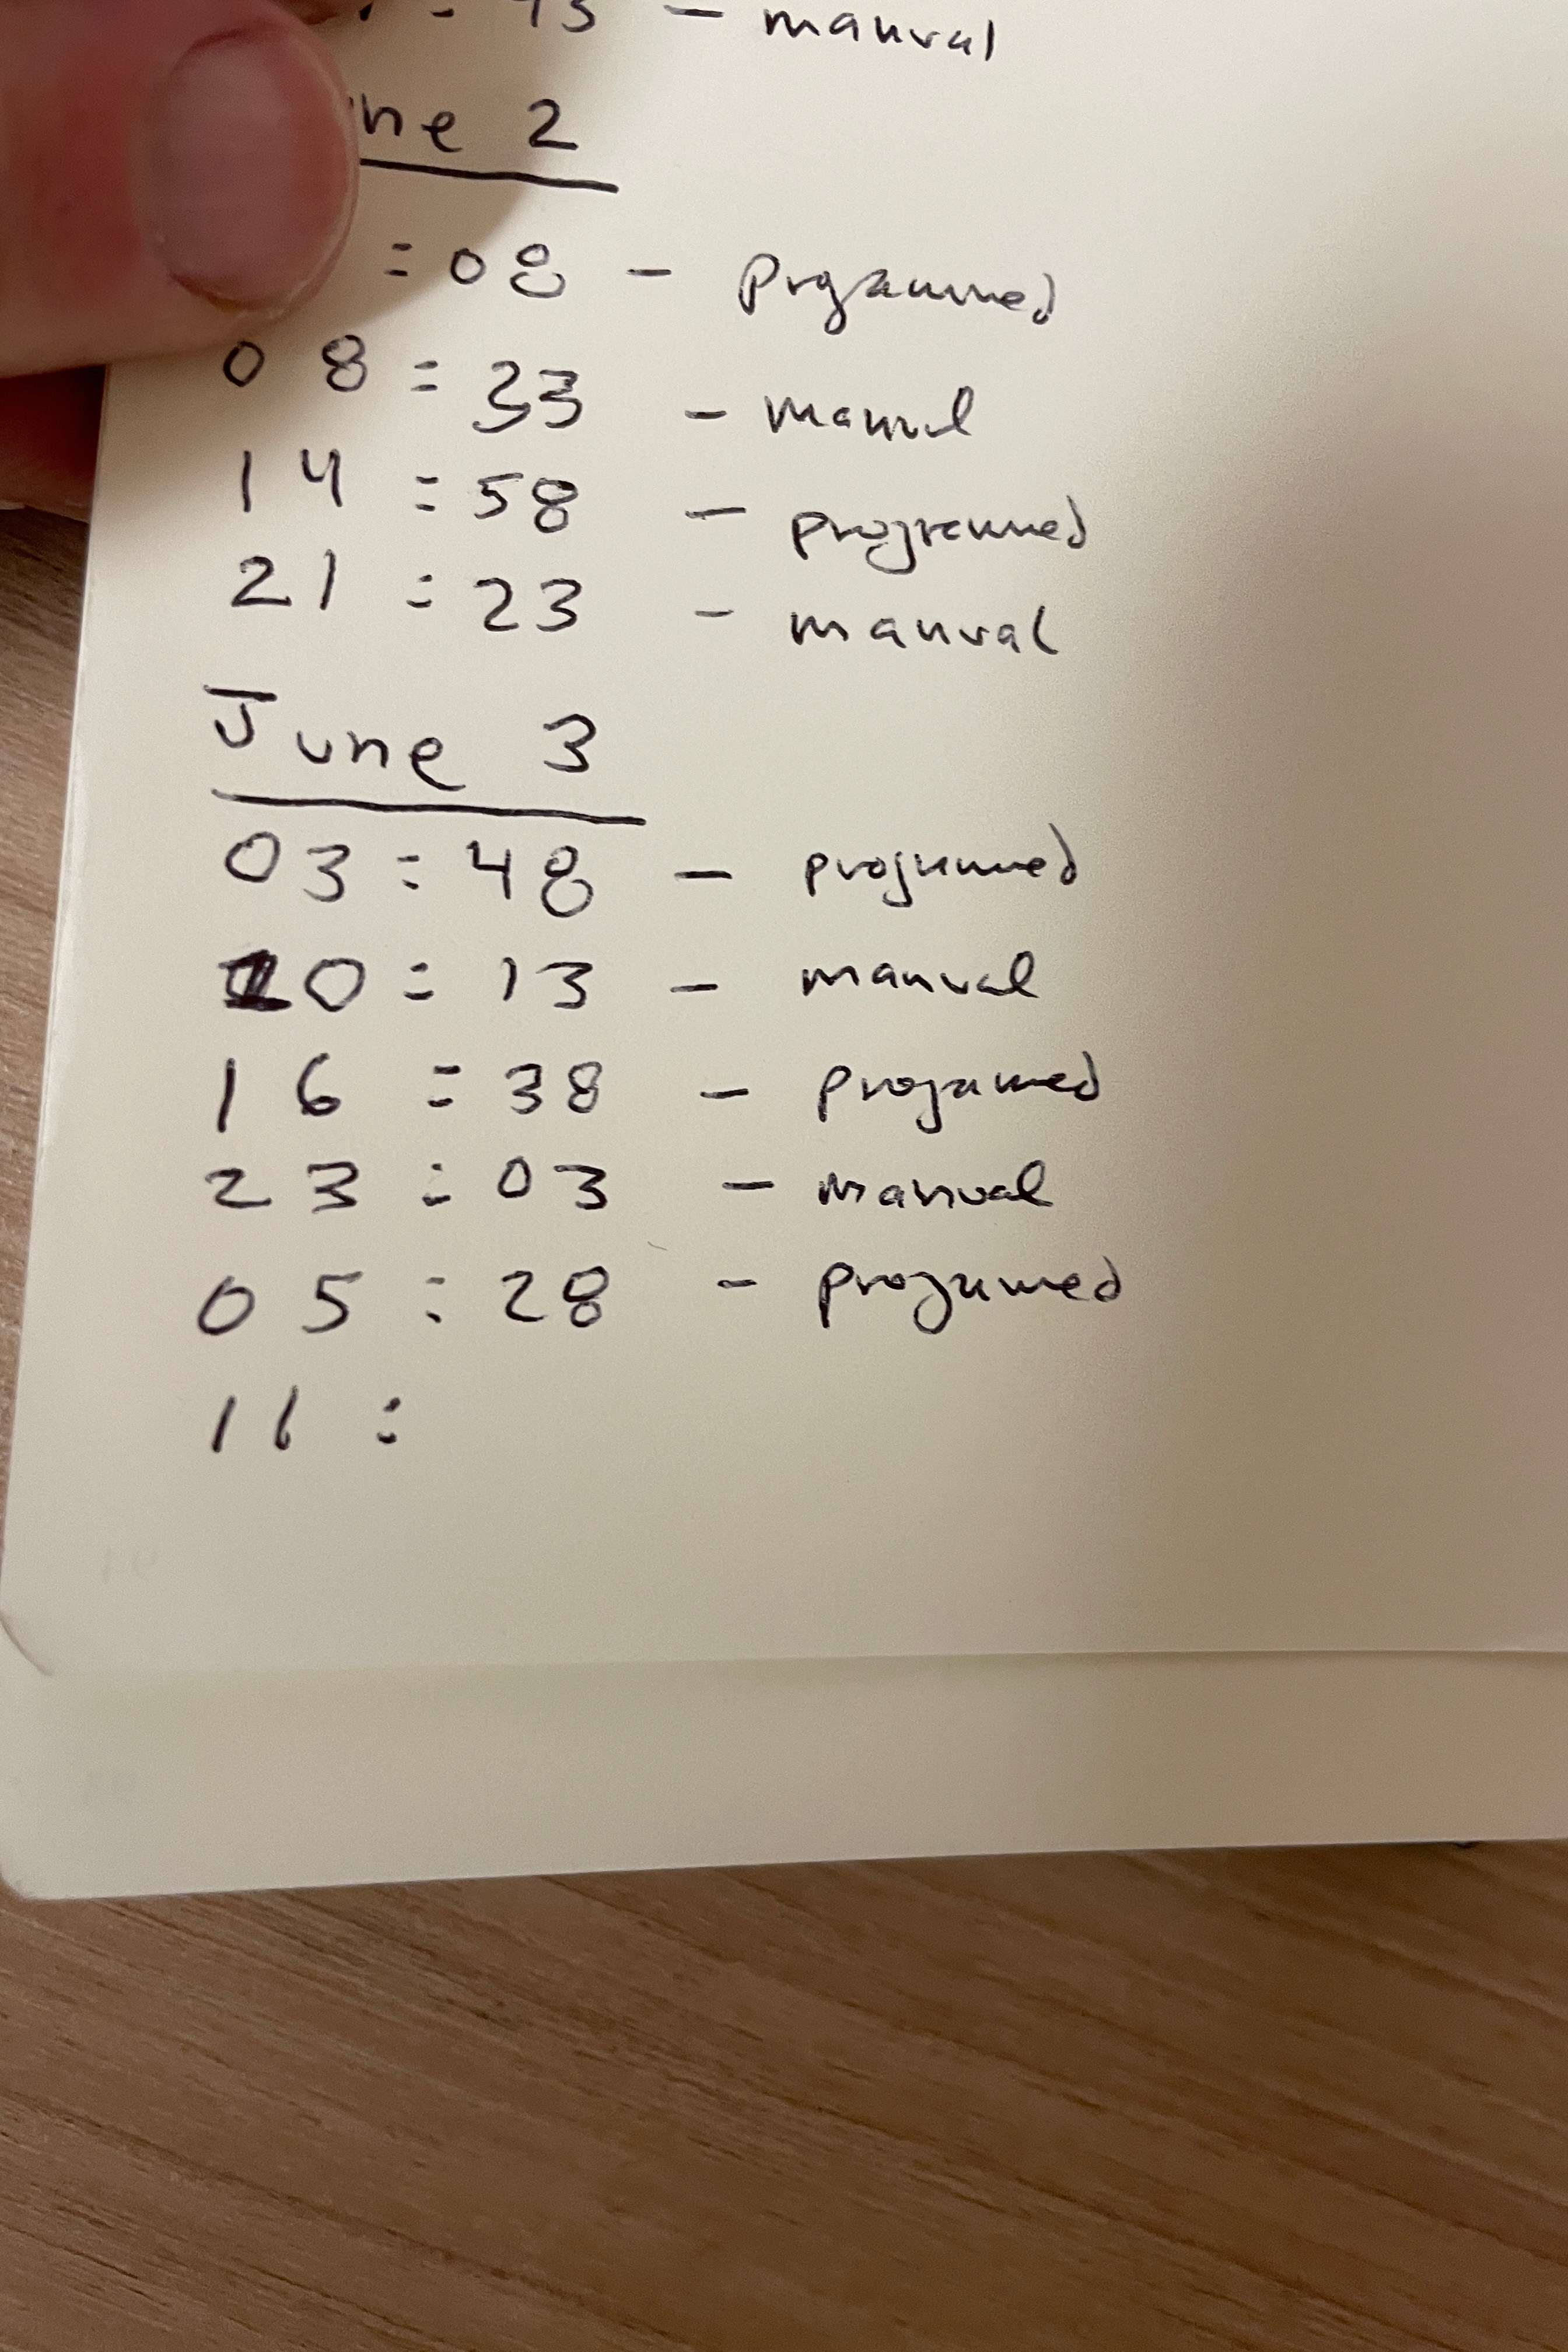 43 - manual
une 2
:08 - prgrammed
08:33 - manual
14:58 - programmed
21:23 - manual
June 3
03:48 - programmed
10:13 - manual
16:38 - programmed
23:03 - manual
05:28 - programmed
11: